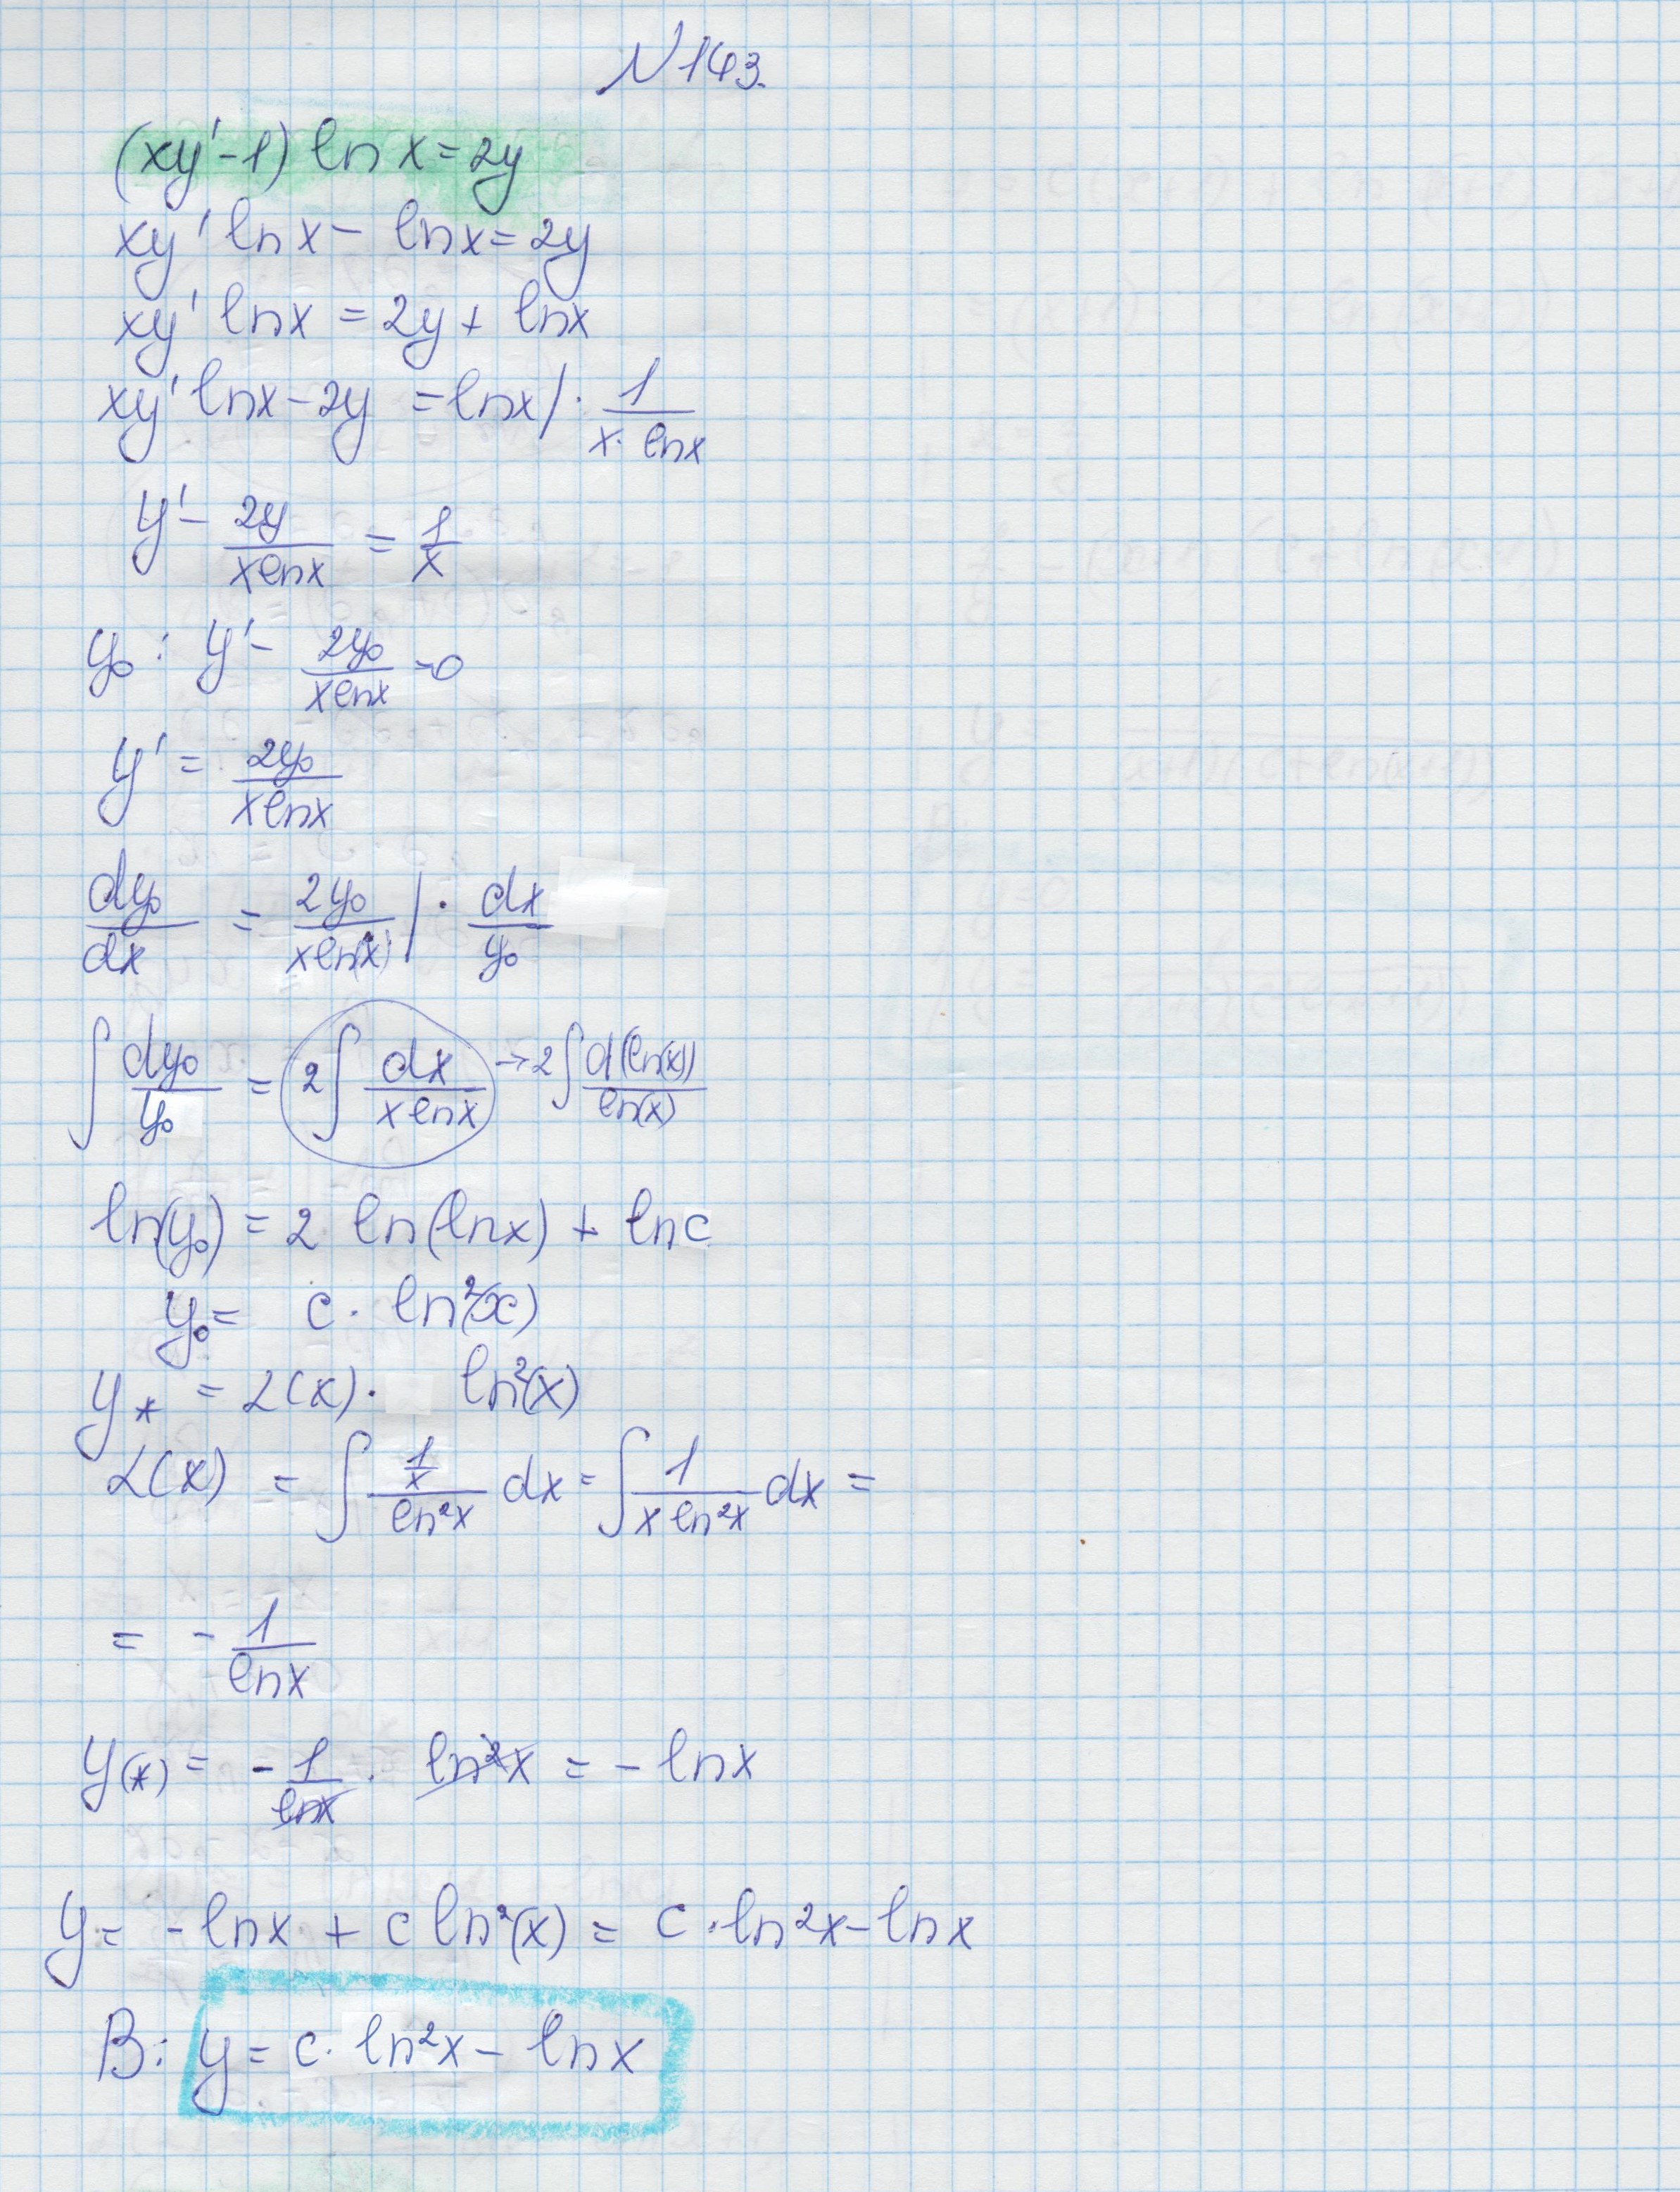 N143.
(xy'-1) ln x = 2y
xy' ln x - ln x = 2y
xy' ln x = 2y + ln x
xy' ln x - 2y = ln x / · 1/(x · ln x)
y' - 2y/(x ln x) = 1/x
y₀ : y' - 2y₀/(x ln x) = 0
y' = 2y₀/(x ln x)
dy₀/dx = 2y₀/(x ln(x)) | · dx/y₀
∫ dy₀/y₀ = 2∫ dx/(x ln x) → 2∫ d(ln(x))/ln(x)
ln(y₀) = 2 ln(ln x) + ln c
y₀ = c · ln²(x)
y* = L(x) · ln²(x)
L(x) = ∫ (1/x)/(ln²x) dx = ∫ 1/(x ln²x) dx =
= - 1/ln x
y(*) = - 1/ln x · ln²x = - ln x
y = - ln x + c ln²(x) = c · ln²x - ln x
В: y = c · ln²x - ln x